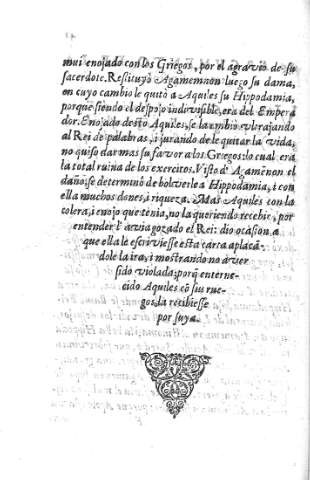 mui enojado con los Griegos, por el agravio de su
sacerdote. Restituyò Agamemnon luego su dama,
en cuyo cambio le quitò a Aquiles su Hippodamia,
porque siendo el despojo indivisible, era del Empera
dor. Enojado desto Aquiles, se la embio vltrajando
al Rei de palabras, i jurando de le quitar la vida;
no quiso dar mas su favor a los Griegos: lo cual era
la total ruina de los exercitos. Visto de Agamēnon el
daño, se determinò de bolverle a Hippodamia, i con
ella muchos dones, i riqueza. Mas Aquiles con la
colera, i enojo que tenia, no la queriendo recebir, por
entender l'avia gozado el Rei: dio ocasion a
que ella le escriviesse esta carta aplacā-
dole la ira, i mostrando no aver
sido violada: porq̄ enterne-
cido Aquiles cō sus rue-
gos, la recibiesse
por suya.